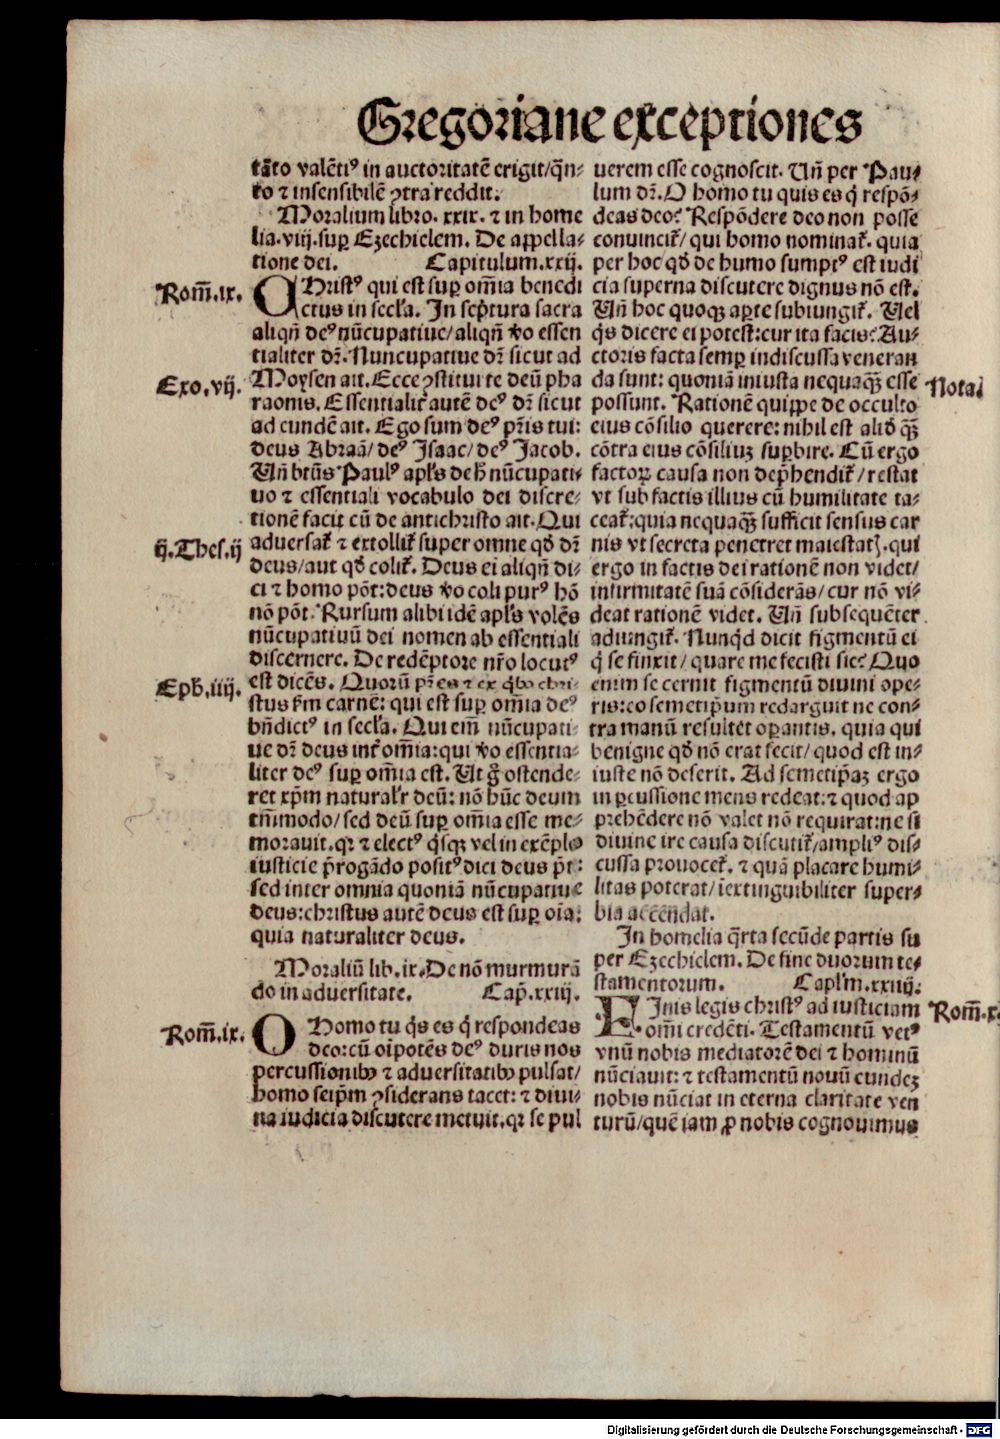 Gregoriane exceptiones
tāto valētiꝰ in auctoritatē erigit/qn̄⸗
to ⁊ insensibilē ꝯtra reddit.
Moralium libro. xxix. ⁊ in home
lia. viij. suꝑ Ezechielem. De appella⸗
tione dei. Capitulum. xxij.
Rom̄. ix.
CHristꝰ qui est suꝑ om̄ia benedi
ctus in secl'a. In scp̄tura sacra
aliqn̄ deꝰ nūcupatiue/aliqn̄ v̄o essen
tialiter dr̄. Nuncupatiue dr̄ sicut ad
Exo. vij.
Moysen ait. Ecce ꝯstitui te deū pha
raonis. Essentialit̄ autē deꝰ dr̄ sicut
ad eundē ait. Ego sum deꝰ pr̄is tui:
deus Abraā/deꝰ Isaac/deꝰ Jacob.
Un̄ btūs Paulꝰ apl's de h̄ nūcupati⸗
uo ⁊ essentiali vocabulo dei discre⸗
tionē facit cū de antichristo ait. Qui
ij. Thes. ij
aduersat̄ ⁊ extollit̄ super omne qd̄ dr̄
deus/aut qd̄ colit̄. Deus ei aliqn̄ di⸗
ci ⁊ homo pōt: deus v̄o coli purꝰ hō
nō pōt. Rursum alibi idē apl's volēs
nūcupatiuū dei nomen ab essentiali
discernere. De redēptore nr̄o locutꝰ
Eph. iiij.
est dicēs. Quorū pr̄es ⁊ ex qͥbꝰ chri⸗
stus fm̄ carnē: qui est suꝑ om̄ia deꝰ
bn̄dictꝰ in secl'a. Qui em̄ nūcupati⸗
ue dr̄ deus int̄ om̄ia: qui v̄o essentia⸗
liter deꝰ suꝑ om̄ia est. Ut g̃ ostende⸗
ret xp̄m natural'r deū: nō hūc deum
tm̄modo/sed deū suꝑ om̄ia esse me⸗
morauit. qꝛ ⁊ electꝰ qͥsqꝫ vel in exēplo
iusticie p̄rogādo positꝰ dici deus p̄t:
sed inter omnia quoniā nūcupatiue
deus: christus autē deus est suꝑ oīa:
quia naturaliter deus.
Moraliū lib. ix. De nō murmurā
do in aduersitate. Cap̄. xxiij.
Rom̄. ix.
O Homo tu qͥs es qͥ respondeas
deo: cū oīpotēs deꝰ duris nos
percussionibꝰ ⁊ aduersitatibꝰ pulsat/
homo seip̄m ꝯsiderans tacet: ⁊ diui⸗
na iudicia discutere metuit. qꝛ se pul
uerem esse cognoscit. Un̄ per Pau⸗
lum dr̄. O homo tu quis es qͥ respō⸗
deas deo? Respōdere deo non posse
conuincit̄/qui homo nominat̄. quia
per hoc qd̄ de humo sumptꝰ est iudi
cia superna discutere dignus nō est.
Un̄ hoc quoqꝫ aꝑte subiungit̄. Uel
qͥs dicere ei potest: cur ita facis? Au⸗
ctoris facta semꝑ indiscussa veneran
da sunt: quoniā iniusta nequaqꝫ̄ esse
Nota
possunt. Rationē quippe de occulto
eius cōsilio querere: nihil est aliud qꝫ̄
cōtra eius cōsiliuꝫ suꝑbire. Cū ergo
factoꝝ causa non dep̄hendit̄/restat
vt sub factis illius cū humilitate ta⸗
ceat̄: quia nequaqꝫ̄ sufficit sensus car
nis vt secreta penetret maiestatꝭ. qui
ergo in factis dei rationē non videt/
infirmitatē suā cōsiderās/cur nō vi⸗
deat rationē videt. Un̄ subsequēter
adiungit̄. Nunqͥd dicit figmentū ei
qͥ se finxit/quare me fecisti sic? Quo
enim se cernit figmentū diuini ope⸗
ris: eo semetip̄um redarguit ne con⸗
tra manū resultet oꝑantis. quia qui
benigne qd̄ nō erat fecit/quod est in⸗
iuste nō deserit. Ad semetip̄aꝫ ergo
in ꝑcussione mens redeat: ⁊ quod ap
prehēdere nō valet nō requirat: ne si
diuine ire causa discutit̄/ampliꝰ dis⸗
cussa prouocet̄. ⁊ quā placare humi⸗
litas poterat/īextinguibiliter super⸗
bia accendat.
In homelia qr̄ta secūde partis su
per Ezechielem. De fine duorum te⸗
stamentorum. Capl'm. xxiiij.
Rom̄. x.
FInis legis christꝰ ad iusticiam
om̄i credēti. Testamentū vetꝰ
vnū nobis mediatorē dei ⁊ hominū
nūciauit: ⁊ testamentū nouū eundeꝫ
nobis nūciat in eterna claritate ven
turū/quē iam ꝓ nobis cognouimus
Digitalisierung gefördert durch die Deutsche Forschungsgemeinschaft - DFG